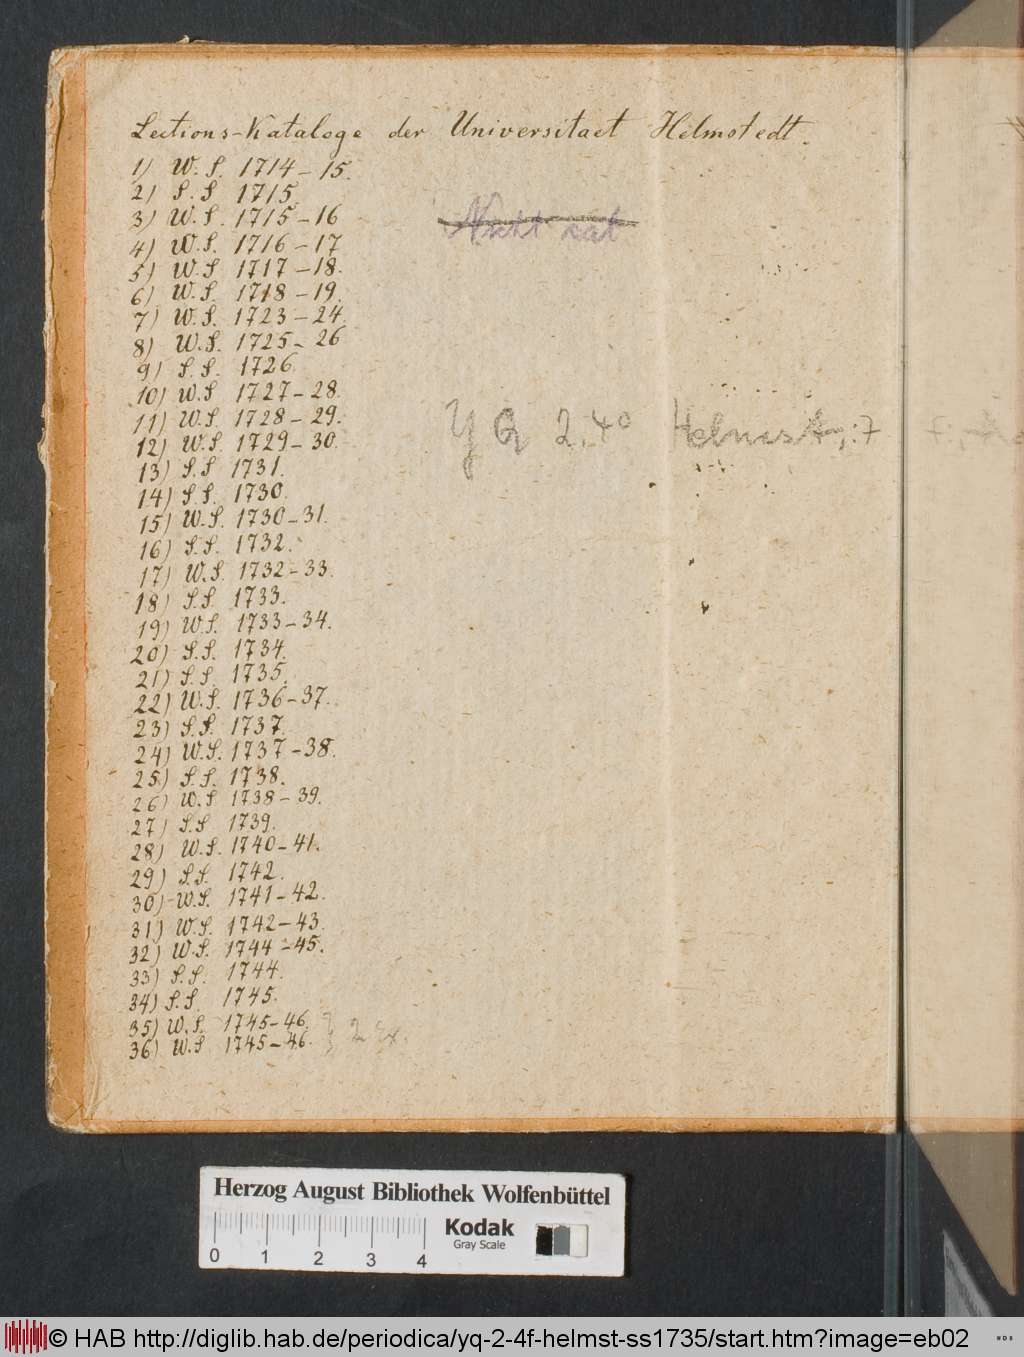 Lections-Kataloge der Universitaet Helmstedt.
1) W. S. 1714 – 15.
2) S. S 1715.
3) W. S. 1715 – 16
Nicht kat
4) W. S. 1716 – 17
5) W. S 1717 – 18.
6) W. S. 1718 – 19.
7) W. S. 1723 – 24.
8) W. S. 1725 – 26
9) S. S. 1726.
10) W. S 1727 – 28.
11) W. S. 1728 – 29.
YQ 2. 4° Helmst.;:7
12) W. S. 1729 – 30.
13) S. S 1731.
14) S. S. 1730.
15) W. S. 1730 – 31.
16) S. S. 1732.
17) W. S. 1732 – 33.
18) S. S. 1733.
19) W. S. 1733 – 34.
20) S. S. 1734.
21) S. S. 1735.
22) W. S. 1736 – 37.
23) S. S. 1737.
24) W. S. 1737 – 38.
25) S. S. 1738.
26) W. S 1738 – 39.
27) S. S 1739.
28) W. S. 1740 – 41.
29) S. S. 1742.
30) W. S. 1741 – 42.
31) W. S. 1742 – 43.
32) W. S. 1744 – 45.
33) S. S. 1744.
34) S. S. 1745.
35) W. S. 1745 – 46.
36) W. S 1745 – 46. } 2 Ex.
Herzog August Bibliothek Wolfenbüttel
0 1 2 3 4
Kodak
Gray Scale
© HAB http://diglib.hab.de/periodica/yq-2-4f-helmst-ss1735/start.htm?image=eb02